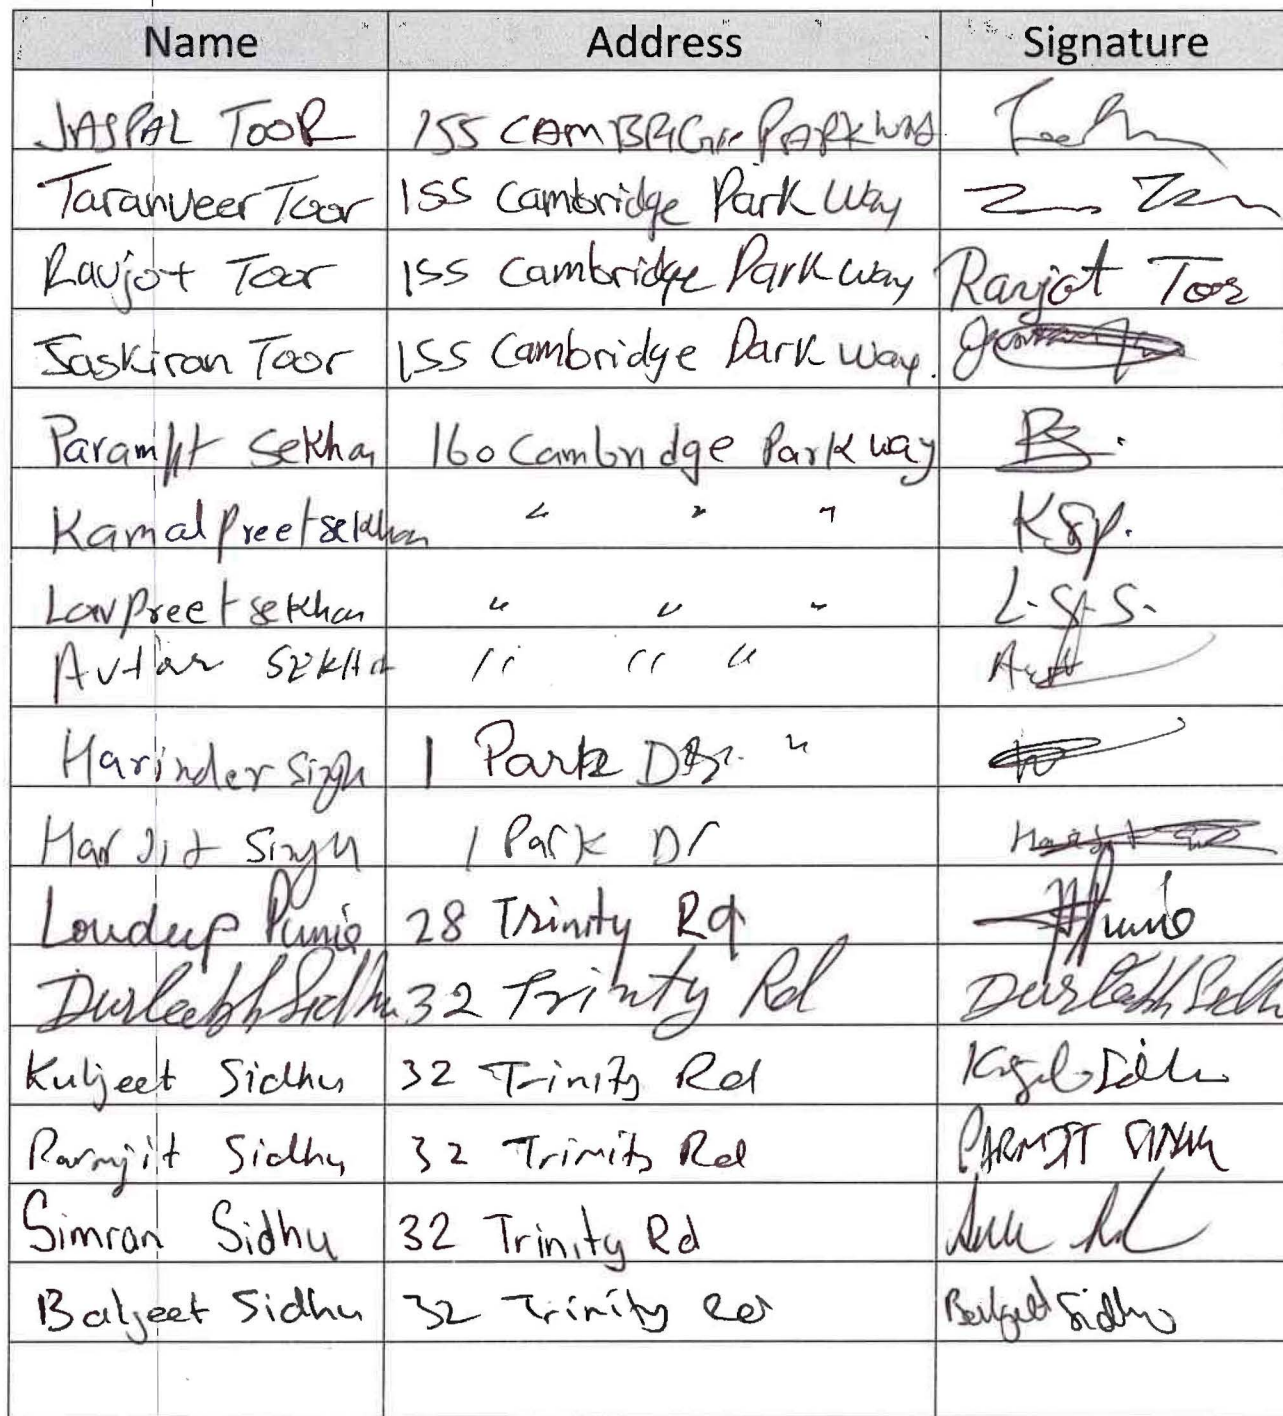 Name Address Signature
JASPAL TOOR 155 CAMBRIGE PARKWAY
Taranveer Toor 155 Cambridge Park Way
Ravjot Toor 155 Cambridge Park way Ravjot Toor
Jaskiran Toor 155 Cambridge Park way.
Paramjit Sekhon 160 Cambridge Park way PS.
Kamalpreet sekhon " " " KSP.
Lovpreet sekhon " " " L.S.S.
Avtar SEKHO " " "
Harinder Singh 1 Park DR. "
Harjit Singh 1 Park Dr
Punia 28 Trinity Rd Punia
Durlabh Sidhu 32 Trinity Rd Durlabh Sidhu
Kuljeet Sidhu 32 Trinity Rd Sidhu
Parmjit Sidhu 32 Trinity Rd PARMJIT SIDHU
Simran Sidhu 32 Trinity Rd
Baljeet Sidhu 32 Trinity Rd Baljeet Sidhu